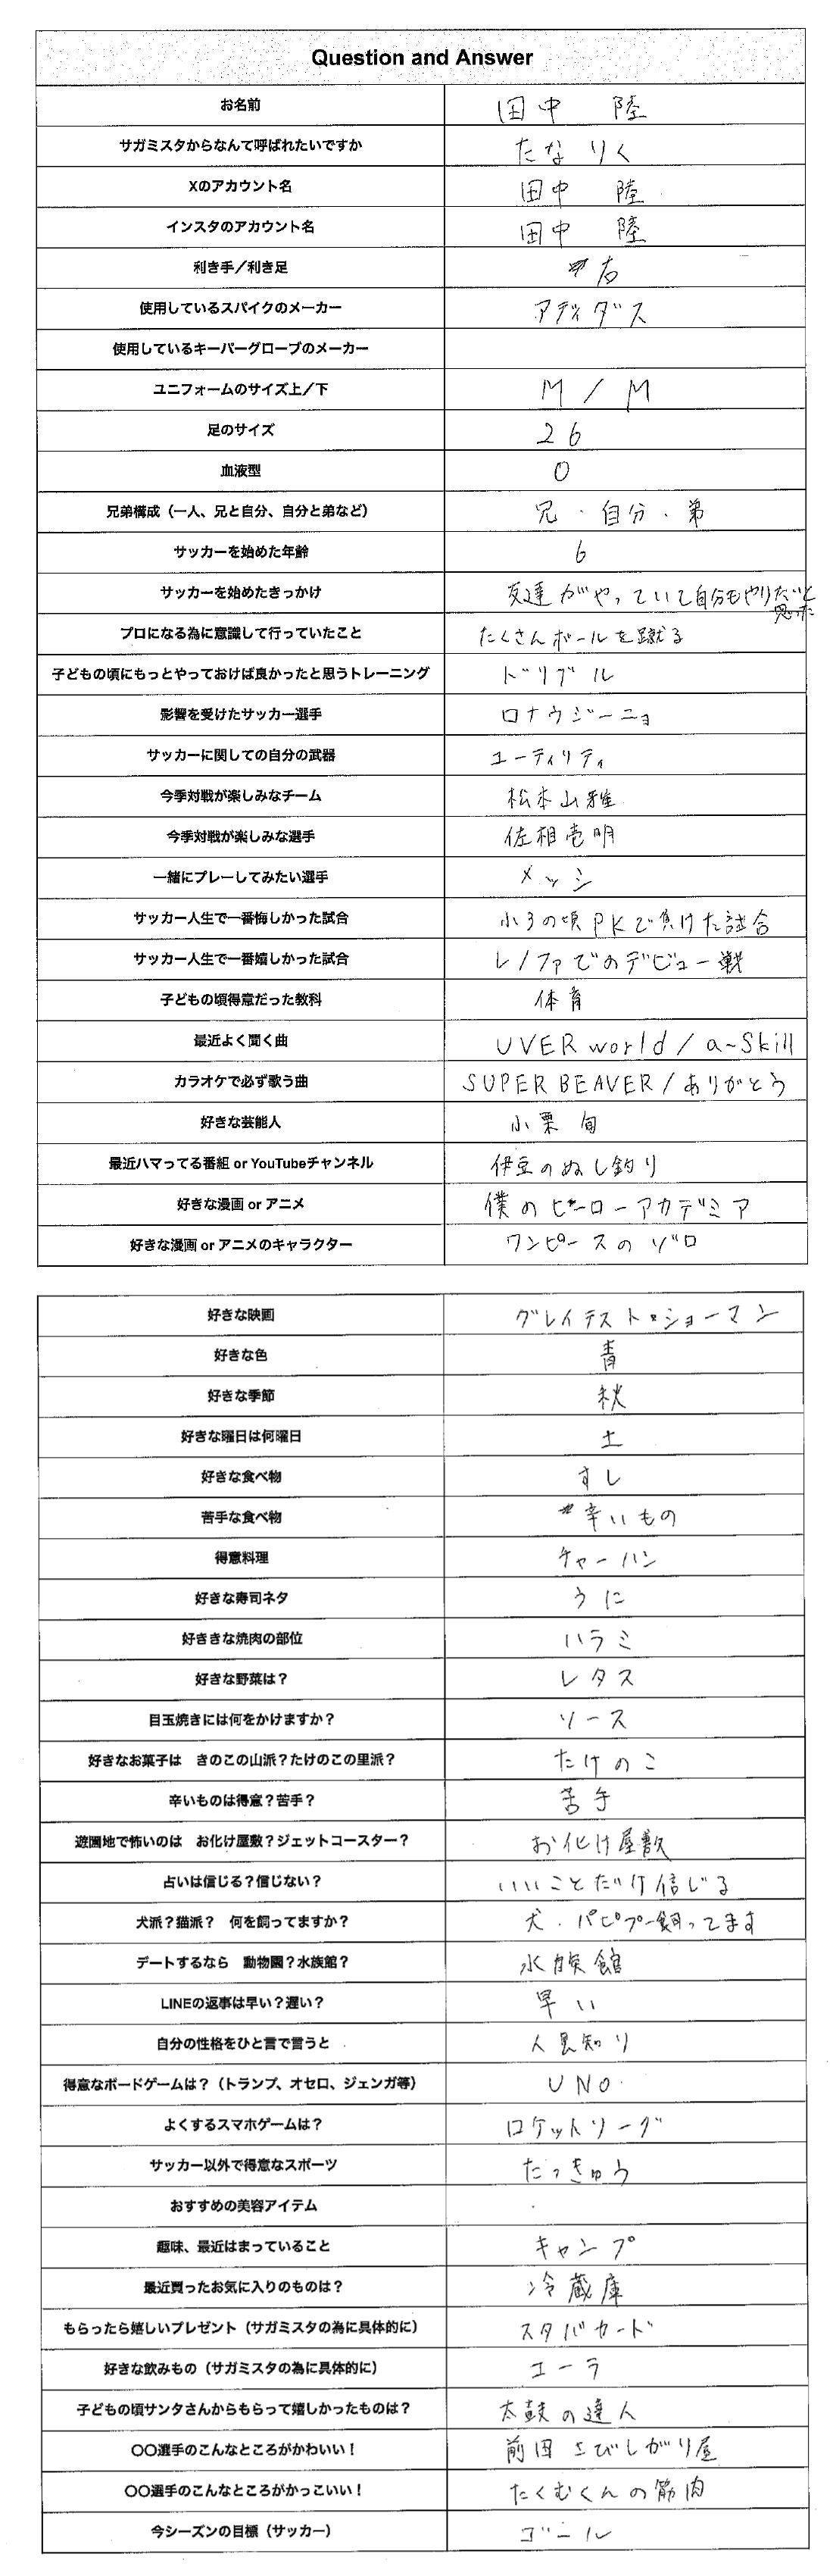 Question and Answer
お名前 田中 陸
サガミスタからなんて呼ばれたいですか たなりく
Xのアカウント名 田中 陸
インスタのアカウント名 田中 陸
利き手／利き足 右
使用しているスパイクのメーカー アディダス
使用しているキーパーグローブのメーカー
ユニフォームのサイズ上／下 M / M
足のサイズ 26
血液型 O
兄弟構成（一人、兄と自分、自分と弟など） 兄・自分・弟
サッカーを始めた年齢 6
サッカーを始めたきっかけ 友達がやっていて自分もやりたいと
思った
プロになる為に意識して行っていたこと たくさんボールを蹴る
子どもの頃にもっとやっておけば良かったと思うトレーニング ドリブル
影響を受けたサッカー選手 ロナウジーニョ
サッカーに関しての自分の武器 ユーティリティ
今季対戦が楽しみなチーム 松本山雅
今季対戦が楽しみな選手 佐相壱明
一緒にプレーしてみたい選手 メッシ
サッカー人生で一番悔しかった試合 小3の頃PKで負けた試合
サッカー人生で一番嬉しかった試合 レノファでのデビュー戦
子どもの頃得意だった教科 体育
最近よく聞く曲 UVERworld / a〜skill
カラオケで必ず歌う曲 SUPER BEAVER / ありがとう
好きな芸能人 小栗旬
最近ハマってる番組 or YouTubeチャンネル 伊豆のぬし釣り
好きな漫画 or アニメ 僕のヒーローアカデミア
好きな漫画 or アニメのキャラクター ワンピースのゾロ
好きな映画 グレイテスト・ショーマン
好きな色 青
好きな季節 秋
好きな曜日は何曜日 土
好きな食べ物 すし
苦手な食べ物 辛いもの
得意料理 チャーハン
好きな寿司ネタ うに
好ききな焼肉の部位 ハラミ
好きな野菜は？ レタス
目玉焼きには何をかけますか？ ソース
好きなお菓子は きのこの山派？たけのこの里派？ たけのこ
辛いものは得意？苦手？ 苦手
遊園地で怖いのは お化け屋敷？ジェットコースター？ お化け屋敷
占いは信じる？信じない？ いいことだけ信じる
犬派？猫派？ 何を飼ってますか？ 犬・パピプー飼ってます
デートするなら 動物園？水族館？ 水族館
LINEの返事は早い？遅い？ 早い
自分の性格をひと言で言うと 人見知り
得意なボードゲームは？（トランプ、オセロ、ジェンガ等） UNO
よくするスマホゲームは？ ロケットリーグ
サッカー以外で得意なスポーツ たっきゅう
おすすめの美容アイテム
趣味、最近はまっていること キャンプ
最近買ったお気に入りのものは？ 冷蔵庫
もらったら嬉しいプレゼント（サガミスタの為に具体的に） スタバカード
好きな飲みもの（サガミスタの為に具体的に） コーラ
子どもの頃サンタさんからもらって嬉しかったものは？ 太鼓の達人
〇〇選手のこんなところがかわいい！ 前田 さびしがり屋
〇〇選手のこんなところがかっこいい！ たくむくんの筋肉
今シーズンの目標（サッカー） ゴール